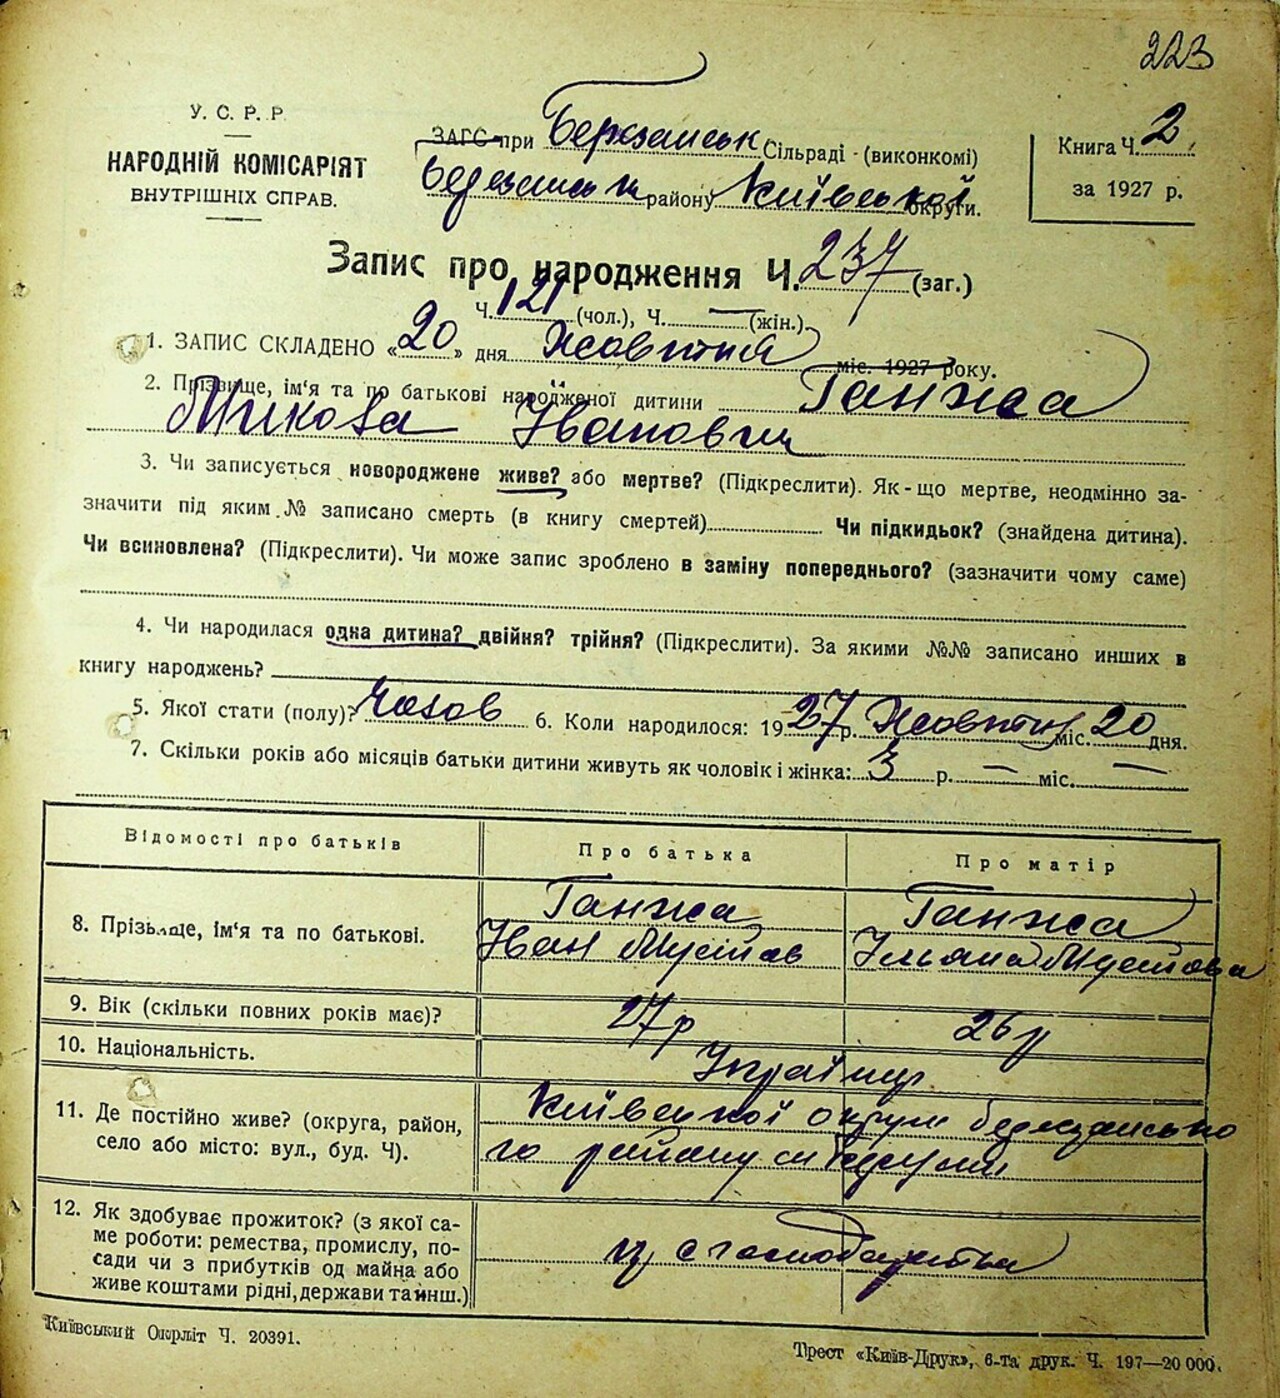 223
У. С. Р. Р.
НАРОДНІЙ КОМІСАРІЯТ
ВНУТРІШНІХ СПРАВ.
ЗАГС при Березанськ Сільраді (виконкомі)
Березанськ району Київської округи.
Книга Ч. 2
за 1927 р.
Запис про народження Ч. 237 (заг.)
Ч. 121 (чол.), Ч. — (жін.).
1. ЗАПИС СКЛАДЕНО «20» дня Жовтня міс. 1927 року.
2. Прізвище, ім'я та по батькові народженої дитини Ганжа
Микола Іванович
3. Чи записується новороджене живе? або мертве? (Підкреслити). Як-що мертве, неодмінно за-
значити під яким № записано смерть (в книгу смертей) Чи підкидьок? (знайдена дитина).
Чи всиновлена? (Підкреслити). Чи може запис зроблено в заміну попереднього? (зазначити чому саме)
4. Чи народилася одна дитина? двійня? трійня? (Підкреслити). За якими №№ записано инших в
книгу народжень?
5. Якої стати (полу)? чолов 6. Коли народилося: 1927 р. Жовтня міс. 20 дня.
7. Скільки років або місяців батьки дитини живуть як чоловік і жінка: 3 р. — міс. —
Відомості про батьків Про батька Про матір
8. Прізвище, ім'я та по батькові. Ганжа Ганжа
Іван Мусійов Ульяна Мусійова
9. Вік (скільки повних років має)? 27 р 26 р
10. Національність. Українці
11. Де постійно живе? (округа, район,
село або місто: вул., буд. Ч).
Київської округи Березансько
го району
12. Як здобуває прожиток? (з якої са-
ме роботи: ремества, промислу, по-
сади чи з прибутків од майна або
живе коштами рідні, держави та инш.)
із с господарства
Київський Окрліт Ч. 20391.
Трест «Київ-Друк», 6-та друк. Ч. 197—20 000.